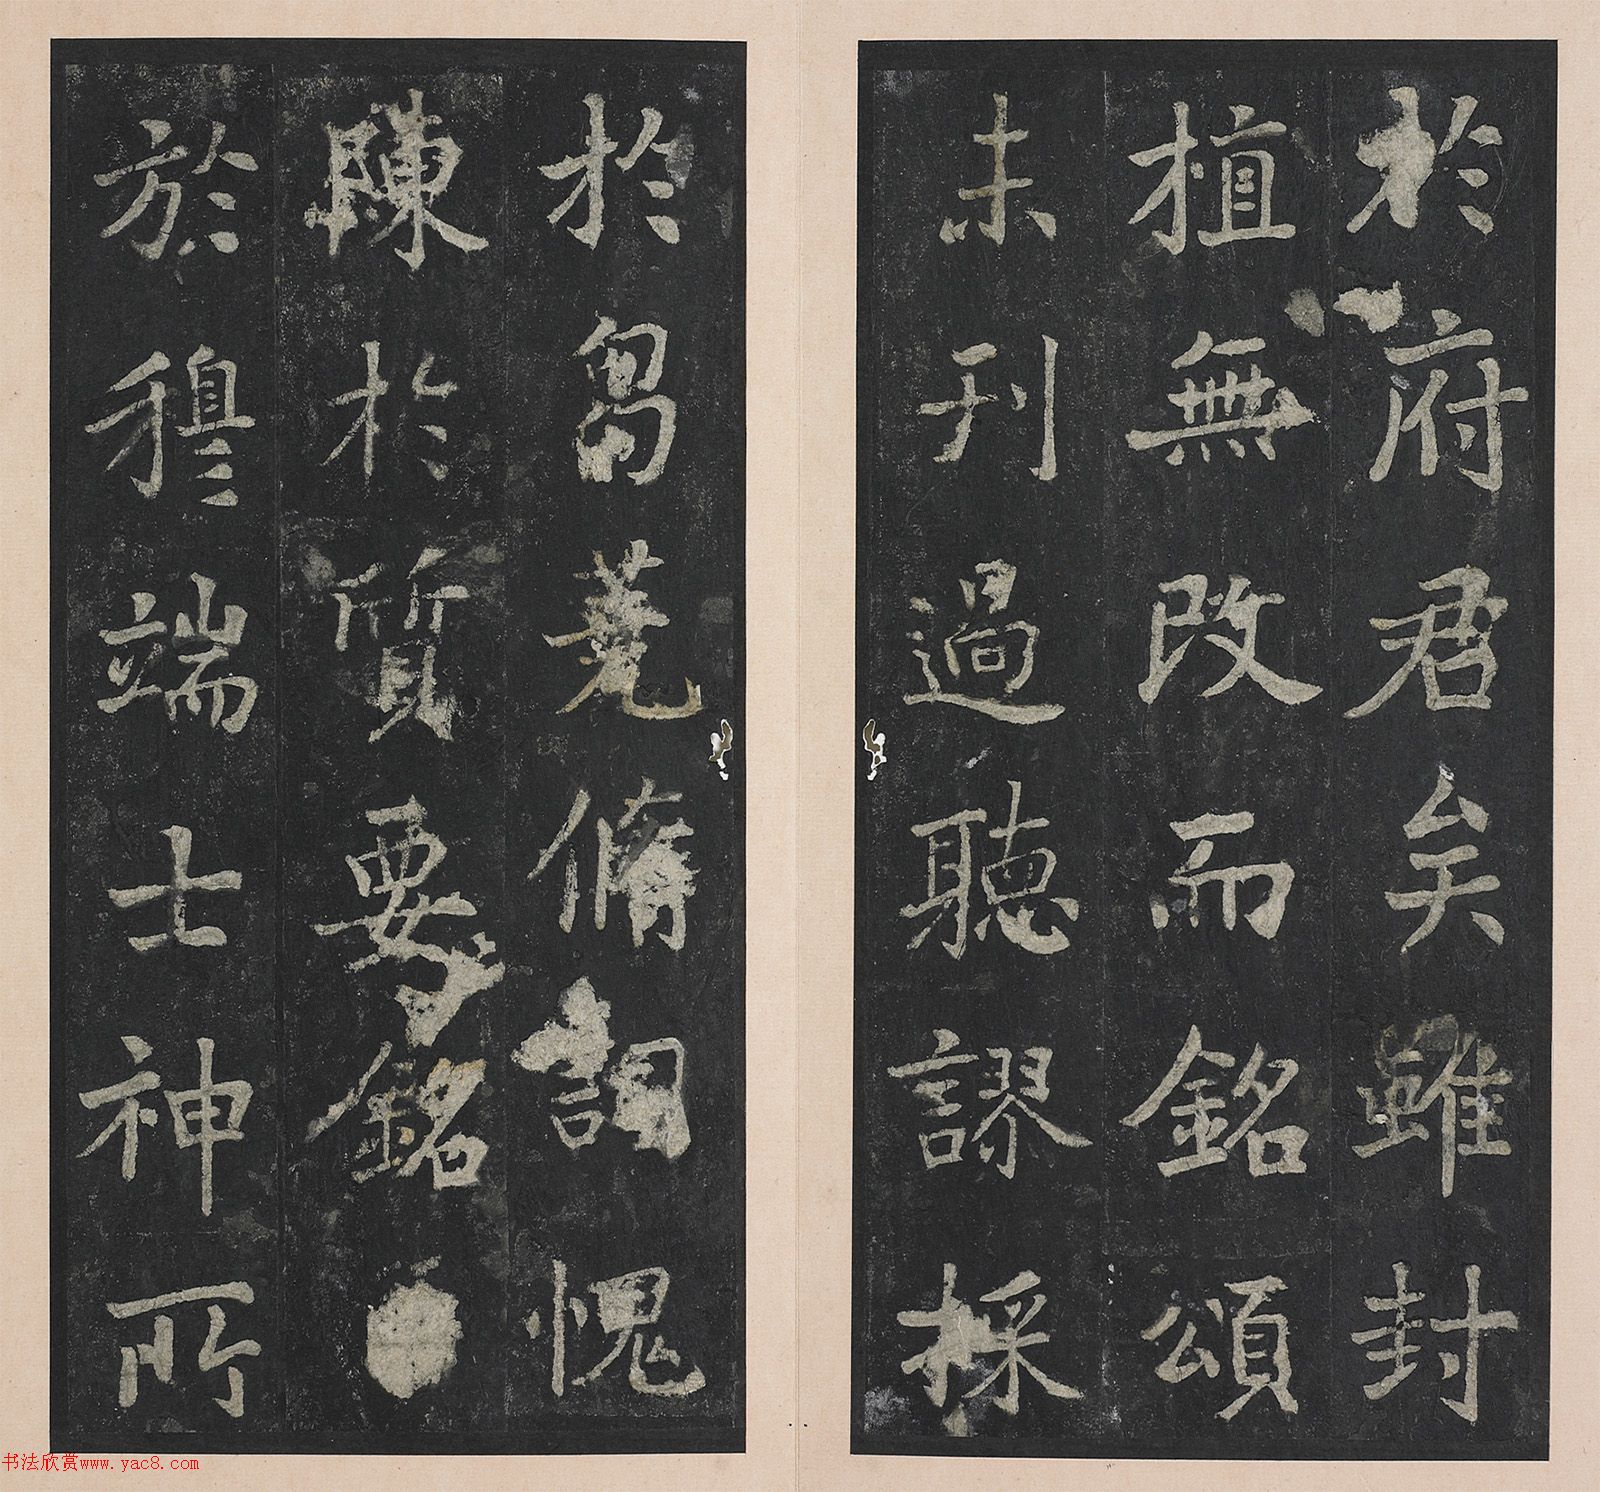 於府君矣雖封
植無改而銘頌
未刊過聽謬採
於芻蕘脩詞愧
陳於質要銘
於穆端士神所
书法欣赏www.yac8.com